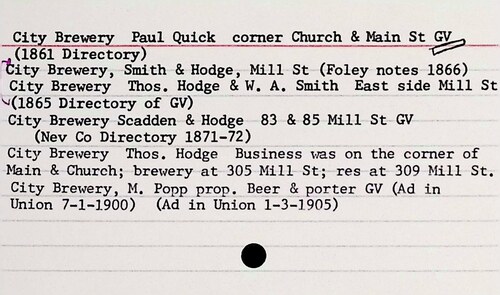 City Brewery Paul Quick corner Church & Main St GV
(1861 Directory)
City Brewery, Smith & Hodge, Mill St (Foley notes 1866)
City Brewery Thos. Hodge & W. A. Smith East side Mill St
(1865 Directory of GV)
City Brewery Scadden & Hodge 83 & 85 Mill St GV
(Nev Co Directory 1871-72)
City Brewery Thos. Hodge Business was on the corner of
Main & Church; brewery at 305 Mill St; res at 309 Mill St.
City Brewery, M. Popp prop. Beer & porter GV (Ad in
Union 7-1-1900) (Ad in Union 1-3-1905)